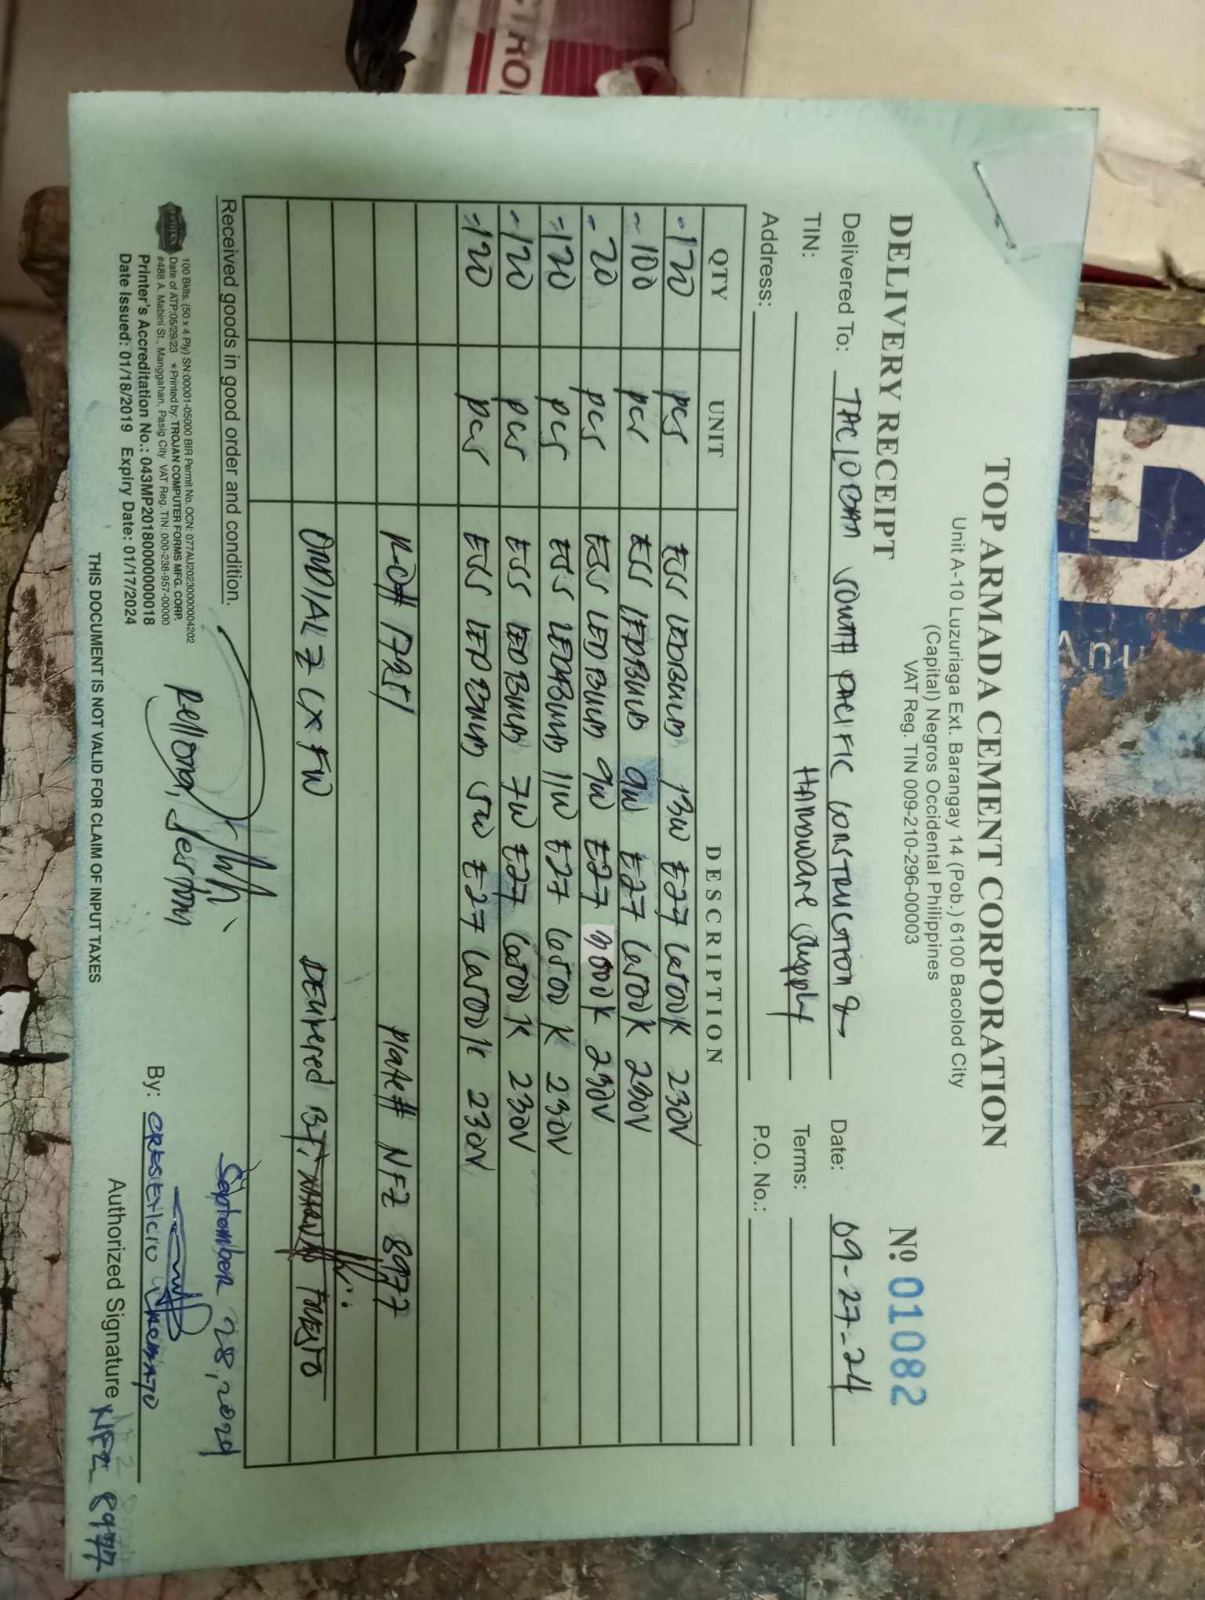 TOP ARMADA CEMENT CORPORATION
Unit A-10 Luzuriaga Ext. Barangay 14 (Pob.) 6100 Bacolod City
(Capital) Negros Occidental Philippines
VAT Reg. TIN 009-210-296-00003
DELIVERY RECEIPT Nº 01082
Delivered To: TACLOBAN SOUTH PACIFIC CONSTRUCTION & Date: 09-27-24
TIN: HARDWARE Supply Terms:
Address: P.O. No.:
QTY UNIT DESCRIPTION
-120 pcs ESS LEDBULB 13W E27 6500K 230V
-100 pcs ESS LEDBULB 9W E27 6500K 230V
-20 pcs ESS LEDBULB 9W E27 3000K 230V
-120 pcs ESS LEDBULB 11W E27 6500K 230V
-120 pcs ESS LEDBULB 7W E27 6500K 230V
-120 pcs ESS LEDBULB 5W E27 6500K 230V
Plate# NFZ 8977
CX FW DELIVERED BY:
Received goods in good order and condition.
September 28, 2024
100 Bklts. (50 x 4 Ply) SN:00001-05000 BIR Permit No. OCN: 077AU20230000004202
Date of ATP:05/29/23 *Printed by: TROJAN COMPUTER FORMS MFG. CORP.
#488 A. Mabini St., Manggahan, Pasig City VAT Reg. TIN: 000-238-957-00000
Printer's Accreditation No.: 043MP20180000000018
Date Issued: 01/18/2019 Expiry Date: 01/17/2024
By:
Authorized Signature NFZ 8977
THIS DOCUMENT IS NOT VALID FOR CLAIM OF INPUT TAXES